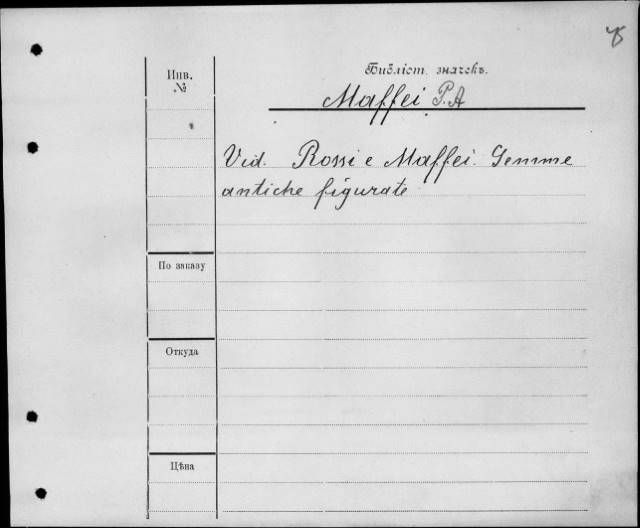 Инв.
№
Библіот. значекъ.
Maffei P. A
Vid. Rossi e Maffei. Gemme
antiche figurate
По заказу
Откуда
Цѣна